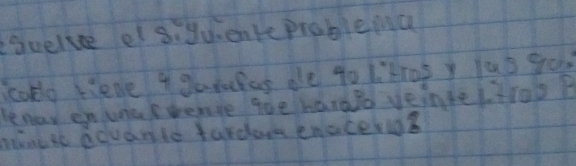 esuelve el siguiente problema
icardo tiene 4 garrafas de 90 litros y las
llenar en una que veinte litros
minuto cuanto tardara en acerlo?